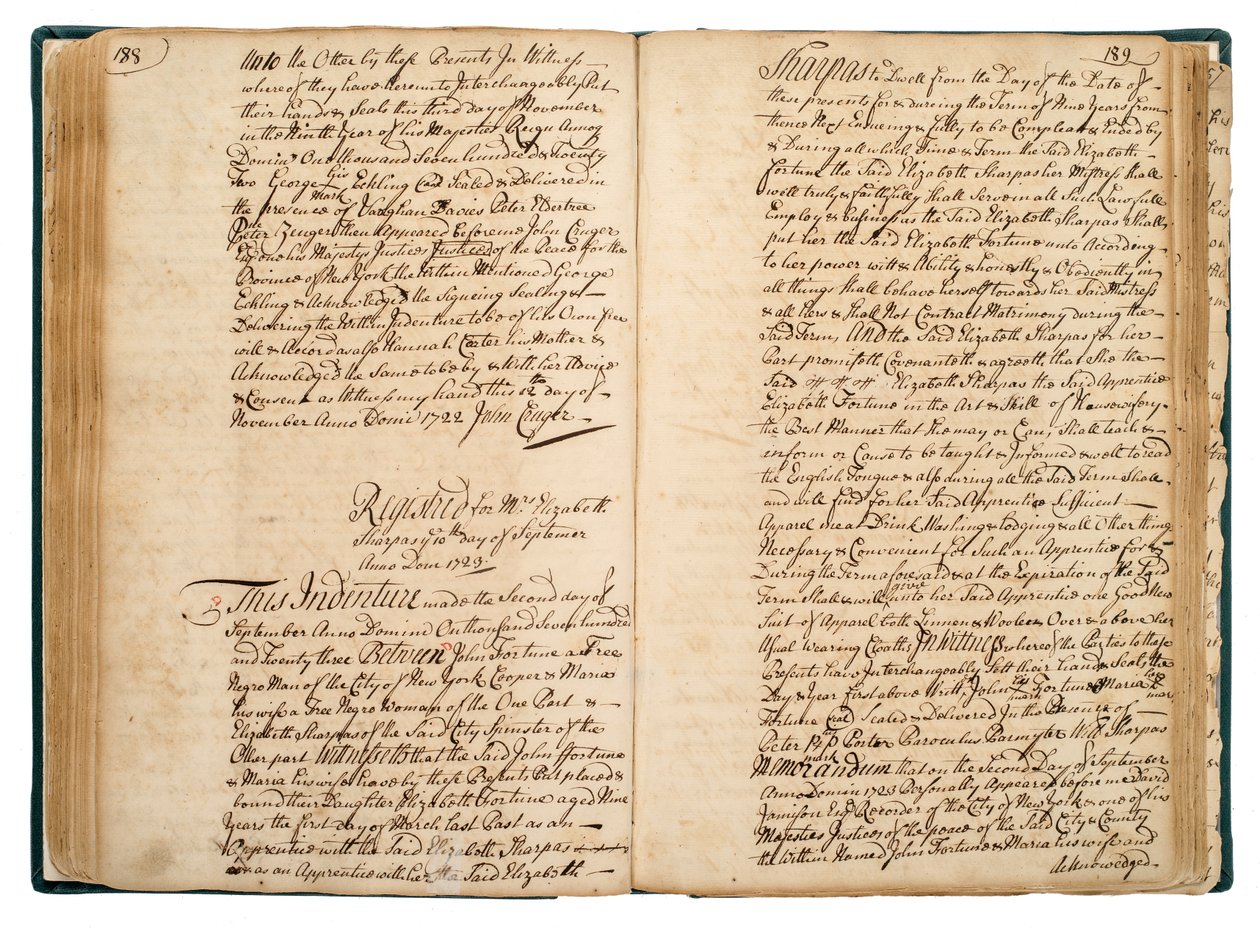 188
Unto the Other by these Presents In Wittness
where of they have hereunto Interchangeably Put
their hands & Seals this third day of November
in the Ninth Year of his Majesties Reign Annoq
Domini One thousand Seven hundred & Twenty
Two George his Eckling Seal Sealed & Delivered in
mark
the presence of Vaughan Davies Peter Eldertree
Peter Zenger then Appeared before me John Cruger
Esq one his Majestys Justices Justices of the Peace for the
Province of New York the Within Mentioned George
Eckling & Acknowledged the Signeing Sealing &
Delivering the Within Indenture to be of his Own free
will & Accord as also Hannah Carter his Mother &
Acknowledged the Same to be by & With her Advice
& Consent as Wittness my hand this 12th day of
November Anno Domi 1722 John Cruger
Registred for Mrs Elizabeth
Sharpas ye 10th day of Septemer
Anno Dom 1723.
This Indenture made the Second day of
September Anno Domini On thousand Seven hundred
and Twenty three Between John Fortune a Free
Negro Man of the City of New York Cooper & Maria
his wife a Free Negro Woman of the One Part &
Elizabeth Sharpas of the Said City Spinster of the
Other part Witnesseth that the Said John ffortune
& Maria his wife have by these Presents Put placed &
bound their Daughter Elizabeth Fortune aged Nine
Years the first day of March last Past as an
Apprentice with the Said Elizabeth Sharpas
as an Apprentice with her the Said Elizabeth
189
Sharpas to Dwell from the Day of the Date of
these presents for & dureing the Term of Nine Years from
thence Next Ensueing & fully to be Compleat & Ended by
& During all which Time & Term the Said Elizabeth
Fortune the Said Elizabeth Sharpas her Mistress Shall
well truly & faithfully Shall Serve in all Such Lawfull
Employ & Business as the Said Elizabeth Sharpas Shall
put her the Said Elizabeth Fortune unto According
to her power witt & Ability & honestly & Obediently in
all things Shall behave herself towards her Said Mistress
& all Hers & Shall Not Contract Matrimony during the
Said Term, AND the Said Elizabeth Sharpas for her
Part promiseth Covenanteth & agreeth that She the
Said Elizabeth Sharpas the Said Apprentice
Elizabeth Fortune in the Art & Skill of Housewifery
the Best Manner that She may or Can, Shall teach &
inform or Cause to be taught & Informed & well to read
the English Tongue & also during all the Said Term Shall
and will find for her Said Apprentice Suffiient
Apparel Meat Drink Washing & Lodging & all Other thing
Necessary & Convenient for Such an Apprentice for &
During the Term aforesaid & at the Expiration of the Said
Term Shall & will give unto her Said Apprentice one Good New
Suit of Apparel both Linnen & Woolen Over & above her
Usual Wearing Cloaths In Wittness whereof the Parties to these
Presents have Interchangeably Sett their hands & Seals the
Day & Year first above Writt, John his mark Fortune Maria her mark
Fortune Seal Sealed & Delivered In the Presence of
Peter P Porter Baroculus Parmyter Will Sharpas
mark
Memorandum that on the Second Day of September
Anno Domin 1723 Personally Appeared before me David
Jamison Esq Recorder of the City of New York & one of his
Majesties Justices of the peace of the Said City & County
the Within Named John Fortune & Maria his wife and
Acknowedged